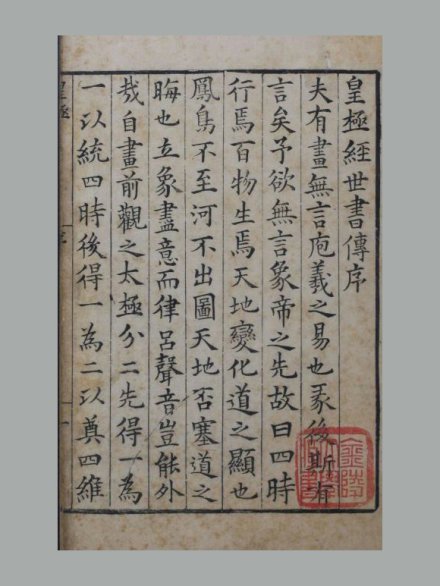 皇極經世書傳序
夫有畫無言庖羲之易也彖後斯有
言矣予欲無言象帝之先故曰四時
行焉百物生焉天地變化道之顯也
鳳鳥不至河不出圖天地否塞道之
晦也立象盡意而律呂聲音豈能外
㦲自畫前觀之太極分二先得一為
一以統四時後得一為二以奠四維